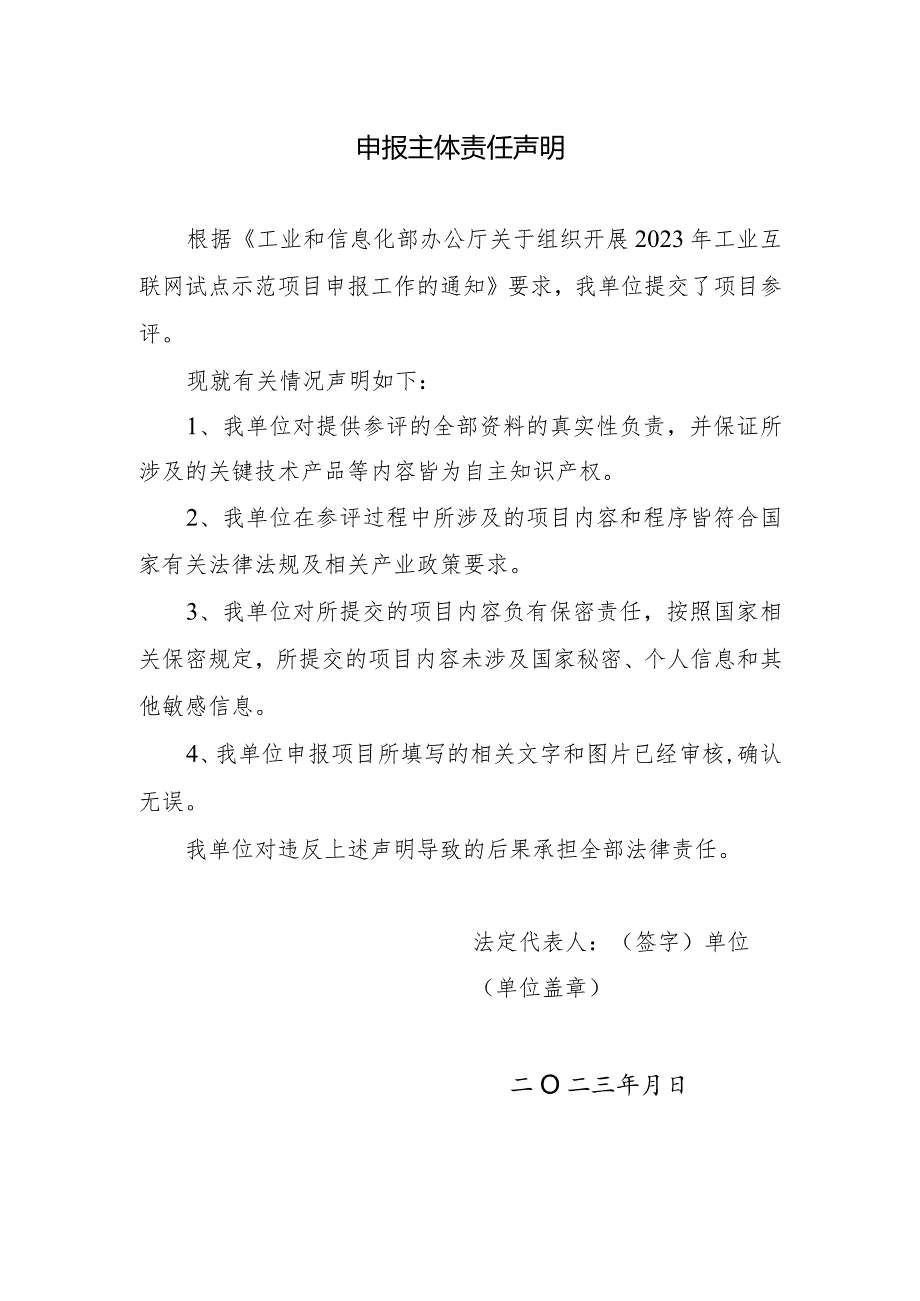 申报主体责任声明
根据《工业和信息化部办公厅关于组织开展2023年工业互
联网试点示范项目申报工作的通知》要求，我单位提交了项目参
评。
现就有关情况声明如下：
1、我单位对提供参评的全部资料的真实性负责，并保证所
涉及的关键技术产品等内容皆为自主知识产权。
2、我单位在参评过程中所涉及的项目内容和程序皆符合国
家有关法律法规及相关产业政策要求。
3、我单位对所提交的项目内容负有保密责任，按照国家相
关保密规定，所提交的项目内容未涉及国家秘密、个人信息和其
他敏感信息。
4、我单位申报项目所填写的相关文字和图片已经审核,确认
无误。
我单位对违反上述声明导致的后果承担全部法律责任。
法定代表人：（签字）单位
（单位盖章）
二〇二三年月日